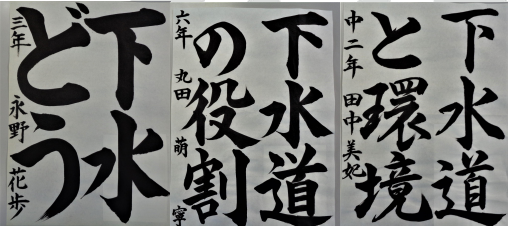 下水道
と環境
中二年 田中美妃
下水道
の役割
六年 丸田 萌寧
下水
どう
三年 永野 花歩